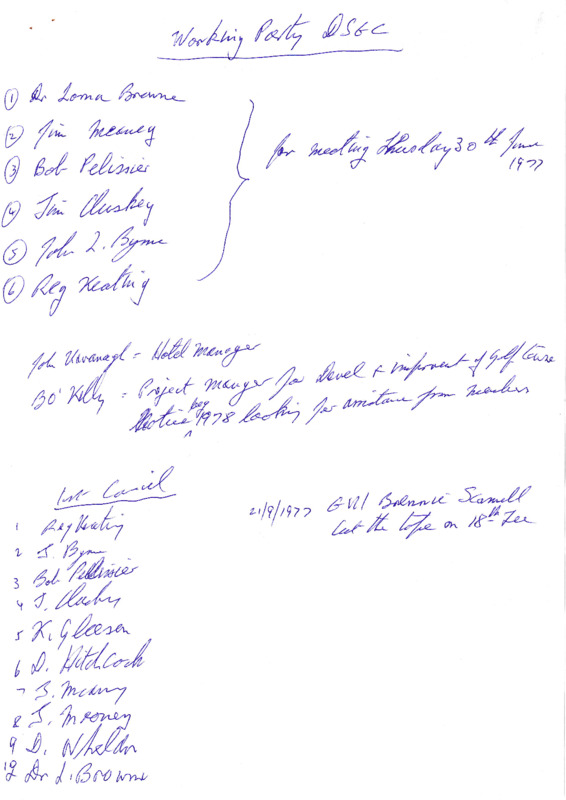 Working Party DSGC
① Dr Lorna Browne
② Jim Meaney
③ Bob Pelissier
④ Jim Cluskey
⑤ John L. Byrne
⑥ Reg Keating
for meeting Thursday 30th June
1977
John Kavanagh = Hotel Manager
BO'Kelly = Project manger for Devel & improvent of Golf Course
Notice beg 1978 looking for assistance from members
1st Council
1 Reg Keating
2 J. Byrne
3 Bob Pellissier
4 J. Clusky
5 K. Gleeson
6 D. Hitchcock
7 J. Meany
8 J. Mooney
9 D. Wheldn
10 Dr L. Browne
21/9/1977 Brennie Scannell
cut the tape on 18th Tee